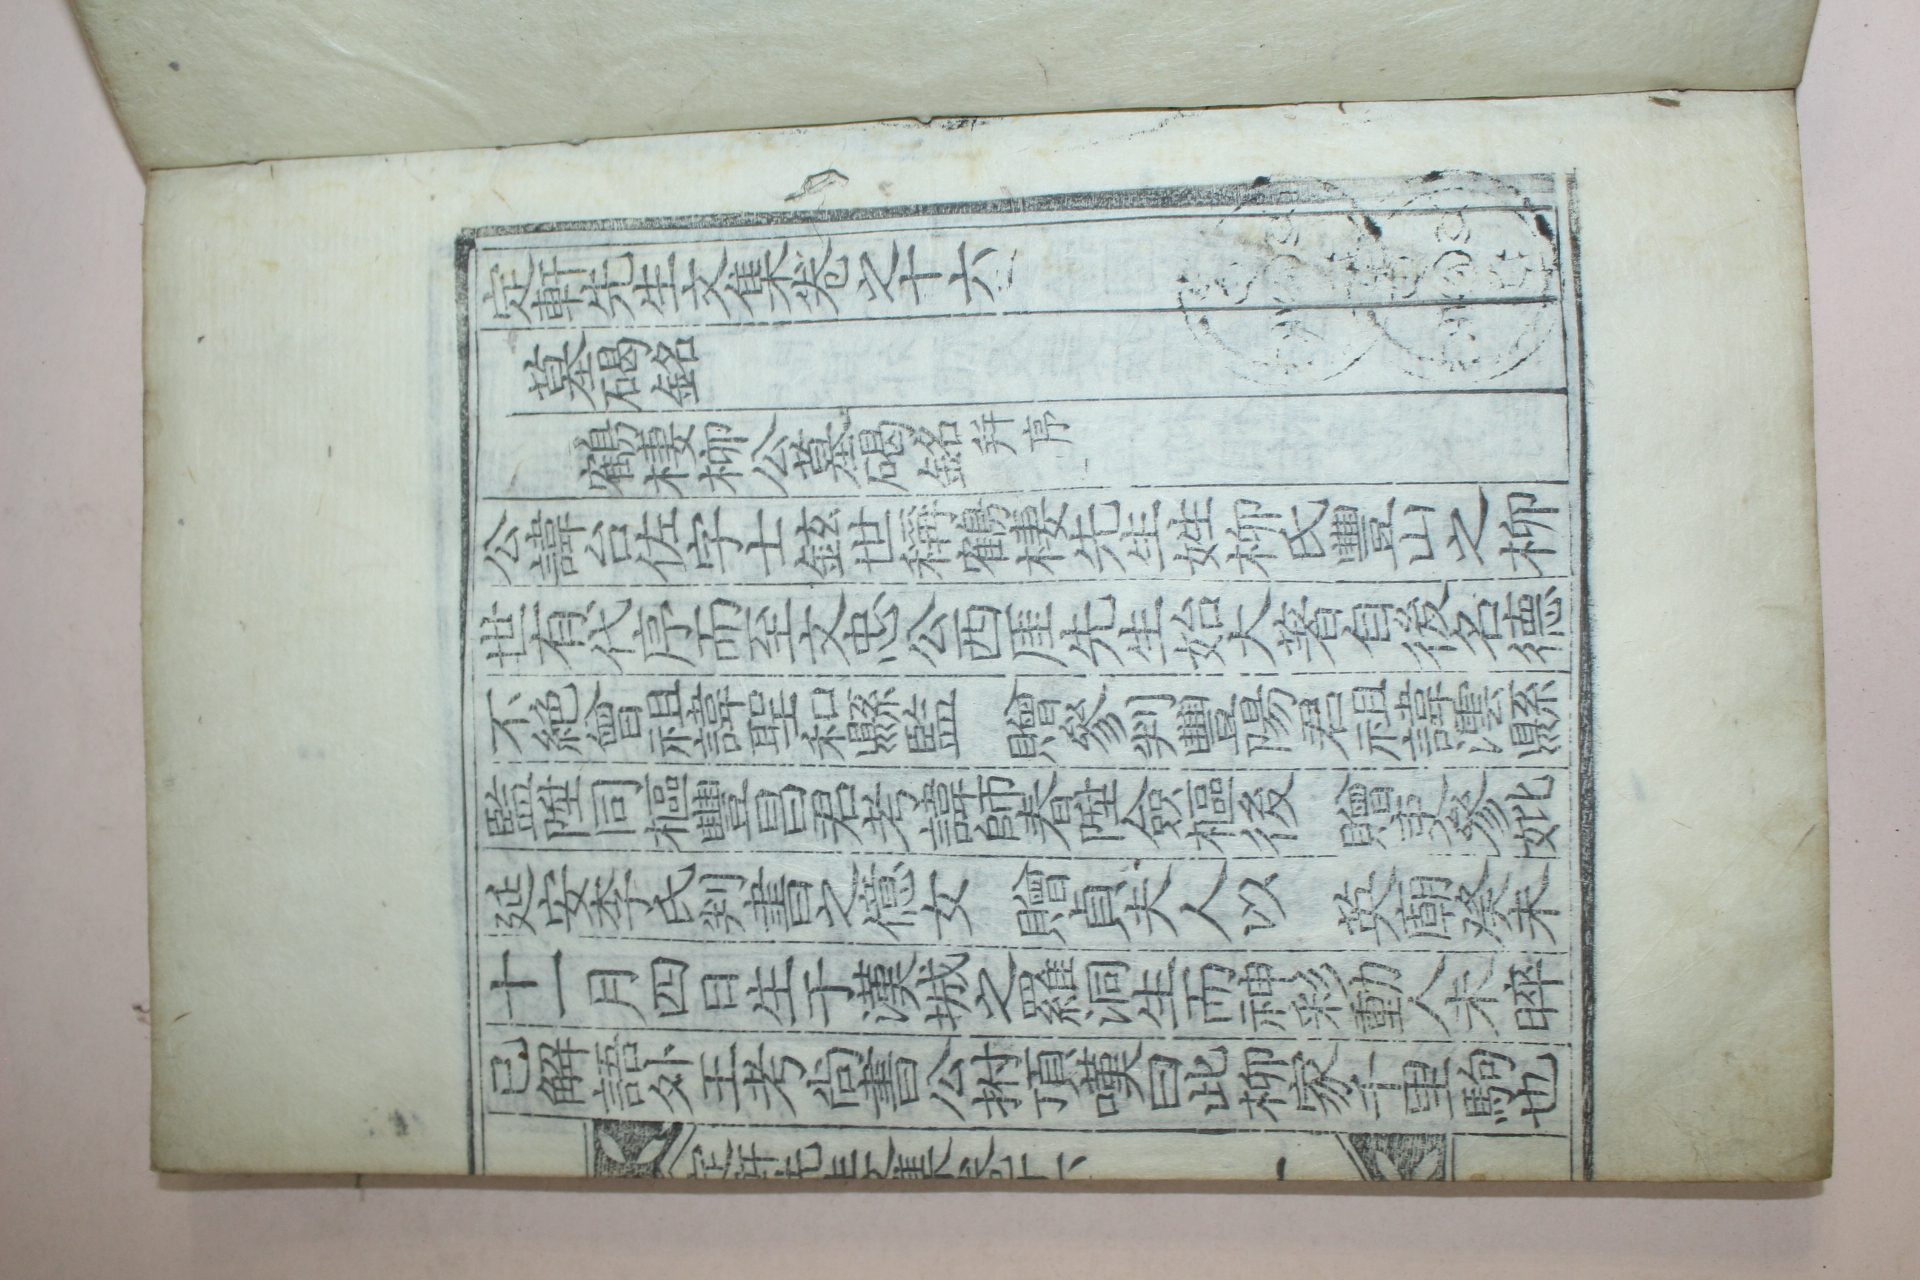 定軒先生文集卷之十六
墓碣銘
鶴棲柳公墓碣銘 幷序
公諱台佐字士鉉世稱鶴棲先生姓柳氏豐山之柳
世有代序而至文忠公西厓先生始大著自後名德
不絶曾祖諱聖和縣監 贈參判豐陽君祖諱澐縣
監陞同樞豐昌君考諱師春陞僉樞後 贈吏參妣
延安李氏判書之億女 贈貞夫人以 英廟癸未
十一月四日生于漢城之羅洞生而神彩動人未晬
已解語外王考尙書公拊頂嘆曰此柳家千里駒也
定軒先生文集卷十六
一